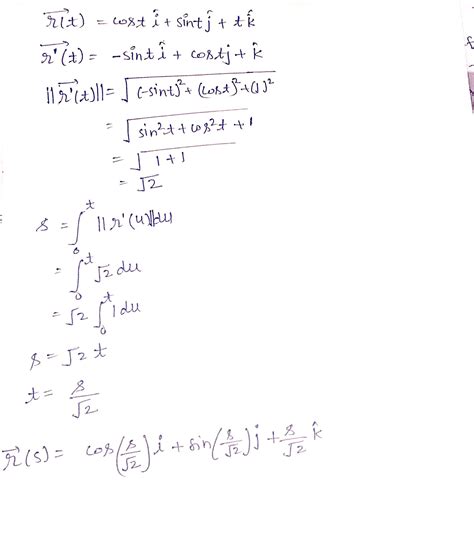 r⃗(t) = cost î + sint ĵ + t k̂
r⃗'(t) = -sint î + cost ĵ + k̂
||r⃗'(t)|| = √((-sint)² + (cost)² + (1)²)
= √(sin²t + cos²t + 1)
= √(1+1)
= √2
s = ∫₀ᵗ ||r'(u)||du
= ∫₀ᵗ √2 du
= √2 ∫₀ᵗ 1 du
s = √2 t
t = s/√2
r⃗(s) = cos(s/√2) î + sin(s/√2) ĵ + s/√2 k̂